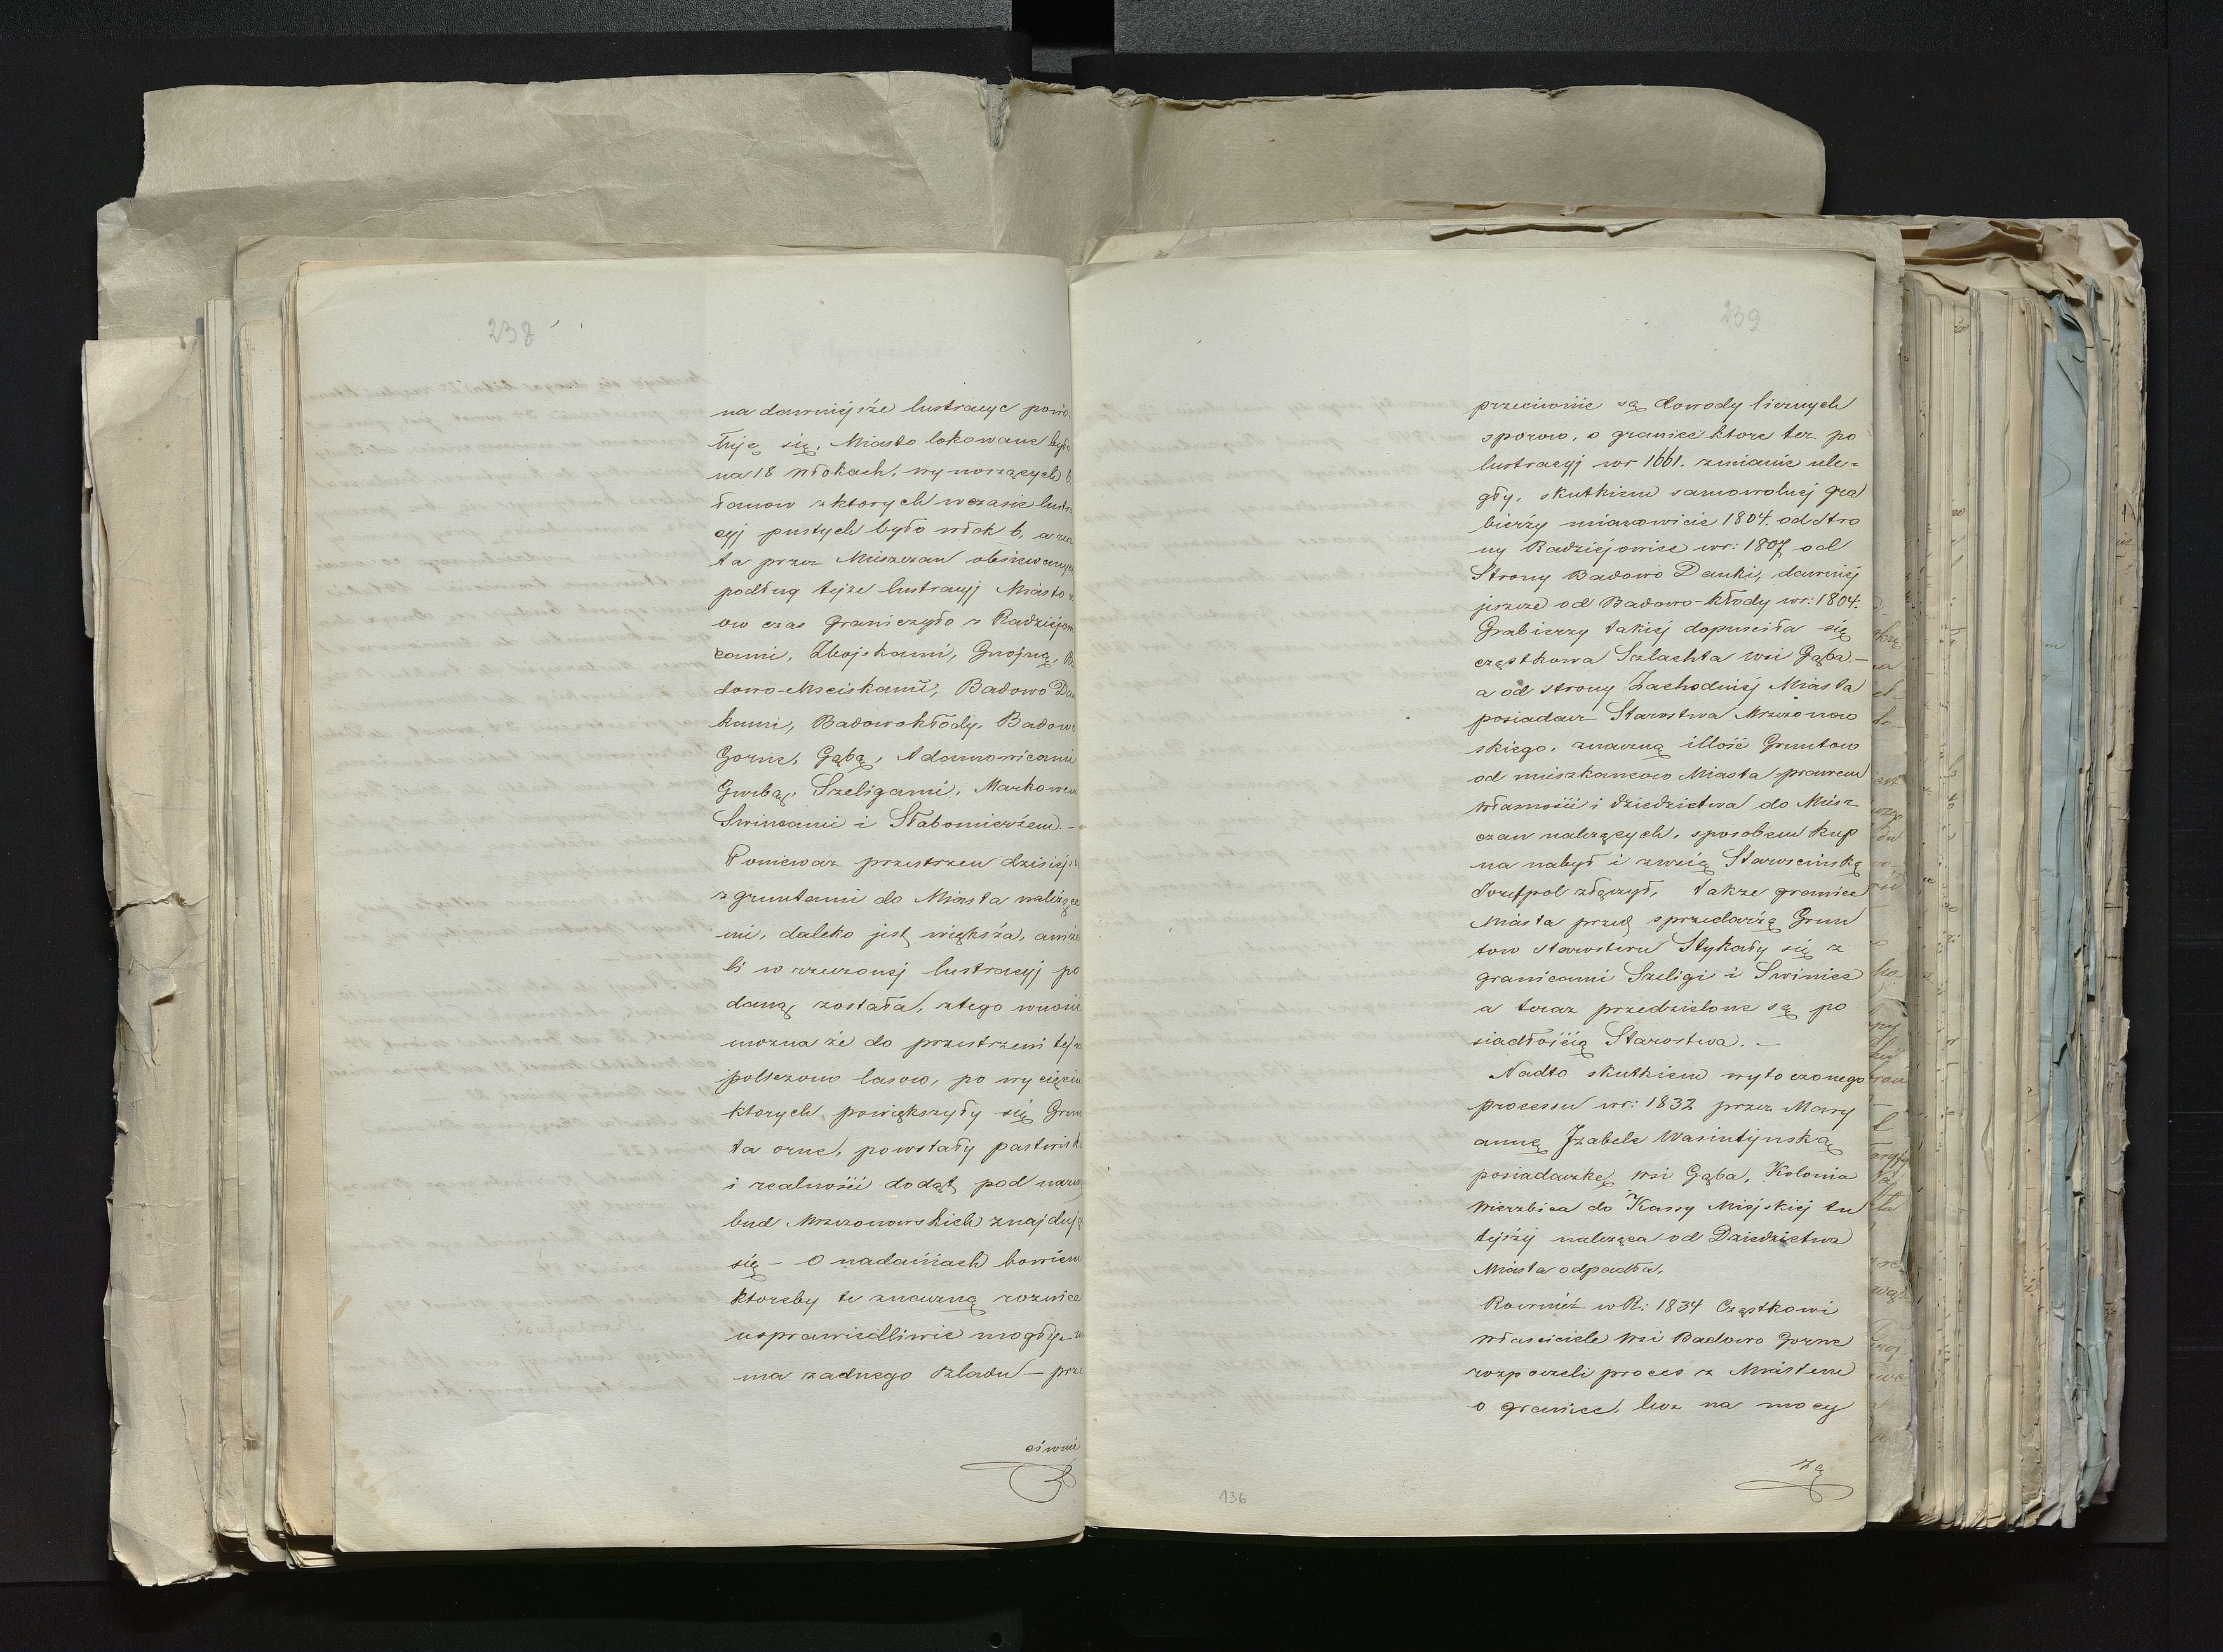 238
na dawniejsze lustracye powo
łuję się. Miasto lokowane było
na 18 włokach, wynoszących 6
łanow z ktorych w czasie lustra
cyj pustych było włok 6, a resz
ta przez Mieszczan obsiewanych
podług tejże lustracyj Miasto
ow czas graniczyło z Radziejowi
cami, Zbojskami, Gnojną, Ba
dowo-Msciskami, Badowo Dan
kami, Badowokłody, Badowo
Gorne, Gąbą, Adamowicami
Grrbą, Szeligami, Markowem
Swincami i Słabomierżem. -
Poniewaz przestrzen dzisiej
z gruntami do Miasta należące
mi, daleko jest większa, aniże
li w rzeczonej lustracyj po
daną została, ztego wnosić
mozna że do przestrzeni tej
poliszono lasow, po wycięciu
ktorych powiększyły się Grun
ta orne, powstały pastwisk
i realności dodąt pod nazwą
bud Mszczonowskich znajdują
się - O nadaniach bowiem
ktoreby te znaczną roznice
usprawiedliwie mogły
ma zadnego szladu - prze
ciwnie
239
przeciwnie są dowody licznych
sporow, o granice ktore tez po
lustracyj wr 1661. zmianie ule=
gły, skutkiem samowolnej gra
bierży mianowicie 1804. od Stro
ny Radziejowice wr: 1807 od
Strony Badowo Danki, dawniej
jeszcze od Badowo-kłody wr: 1804.
Grabierzy takiej dopusciła się
cząstkowa Szlachta wsi Gąba. -
a od strony Zachodniej Miasta
posiadacz Starostwa Mszczonow
skiego, znaczną illość Gruntow
od mieszkancow Miasta prawem
własności i dziedzictwa do Miesz
czan należących, sposobem kup
na nabył i zwsią Staroscinską
Jozefpol złączył, także granice
Miasta przed sprzedażą Grun
tow Starostwu Stykały się z
granicami Szeligi i Swinice
a teraz przedzielone są po
siadłością Starostwa. -
Nadto skutkiem wytoczonego
processu wr: 1832 przez Mary
annę Jzabele Wasiutynską
posiadaczkę wsi Gąba, Kolonia
Wierzbica do Kassy Miejskiej tu
tejszej należąca od Dziedzictwa
Miasta odpadła,
Rownież w R: 1834 Cząstkowi
własciciele Wsi Badowo Gorne
rozpoczeli proces z Miastem
o granice, lecz na mocy
zą
136